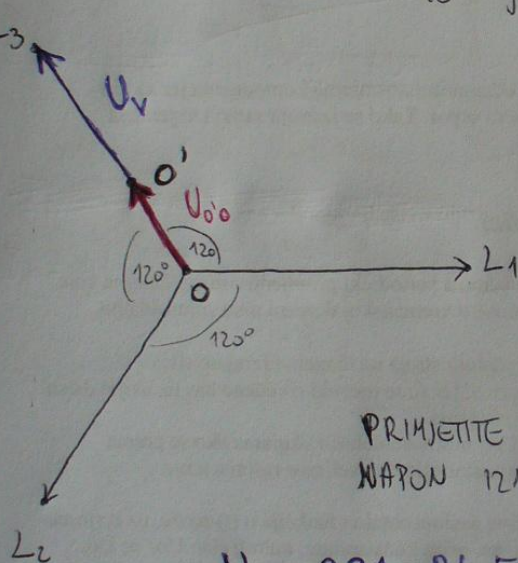 3
U_V
O'
U_O'O
120
120°
O
L1
120°
PRIMJETITE
NAPON
L2